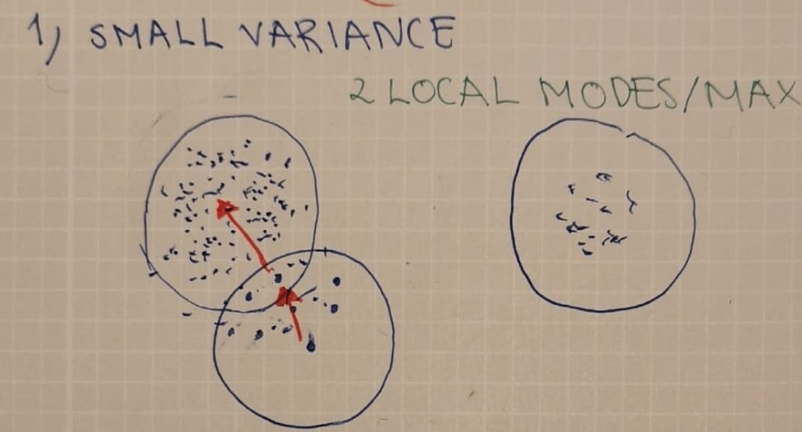 1) SMALL VARIANCE
2 LOCAL MODES/MAX